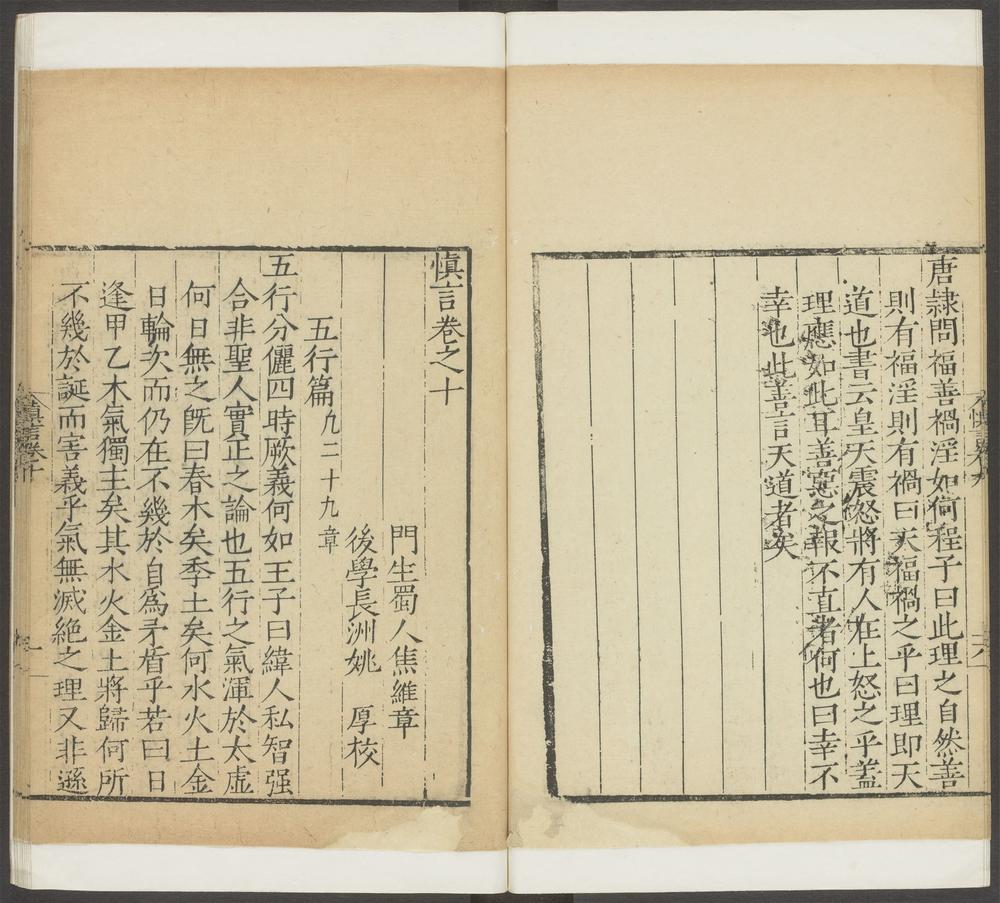 唐隷問福善禍淫如何程子曰此理之自然善
則有福淫則有禍曰天福禍之乎曰理即天
道也書云皇天震怒將有人在上怒之乎蓋
理應如此耳善惡之報不直者何也曰幸不
幸也此善言天道者矣
慎言卷之十
門生蜀人焦維章
後學長洲姚 厚校
五行篇凡二十九章
五行分儷四時厥義何如王子曰緯人私智强
合非聖人實正之論也五行之氣渾於太虛
何日無之旣曰春木矣季土矣何水火土金
日輪次而仍在不幾於自爲矛盾乎若曰日
逢甲乙木氣獨主矣其水火金土將歸何所
不幾於誕而害義乎氣無滅絶之理又非遜
慎言卷十
一